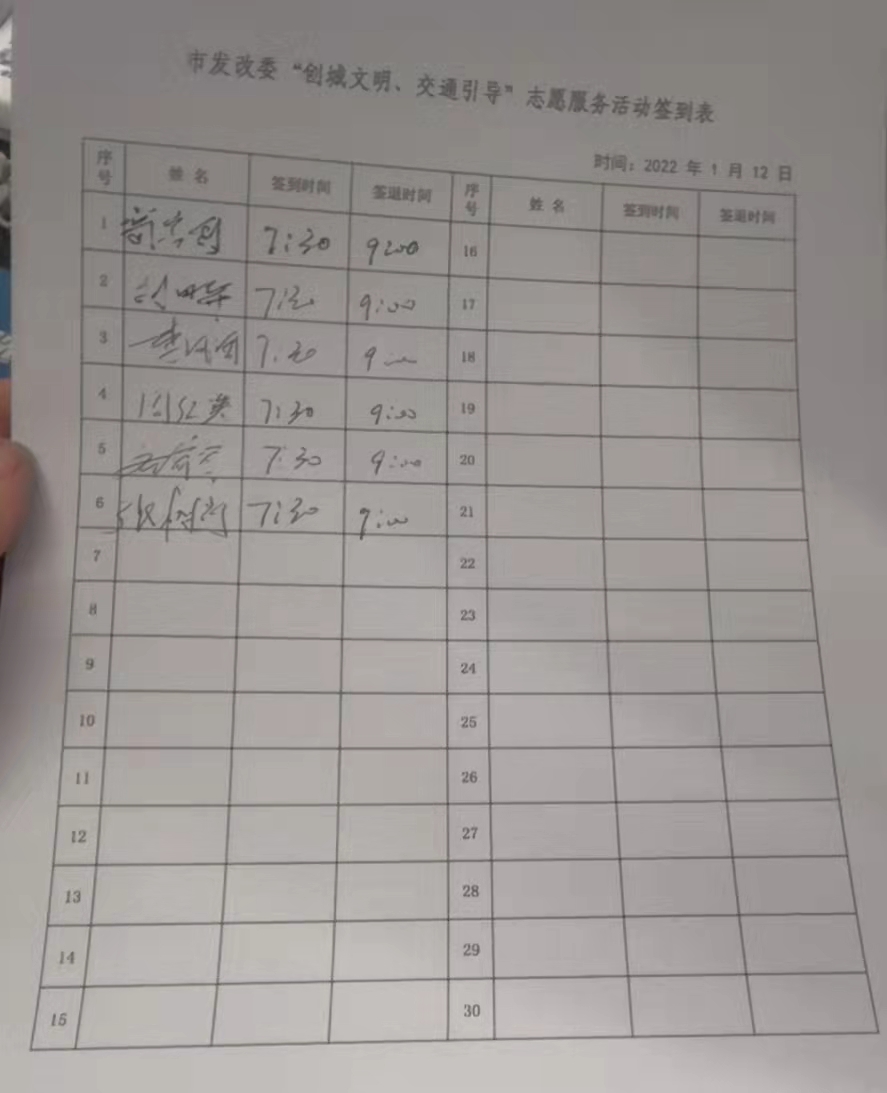 市发改委“创城文明、交通引导”志愿服务活动签到表
时间：2022 年 1 月 12 日
序号 姓名 签到时间 签退时间 序号 姓名 签到时间 签退时间
1 7:30 9:00 16
2 7:30 9:00 17
3 7:30 9:00 18
4 7:30 9:00 19
5 7:30 9:00 20
6 7:30 9:00 21
7 22
8 23
9 24
10 25
11 26
12 27
13 28
14 29
15 30